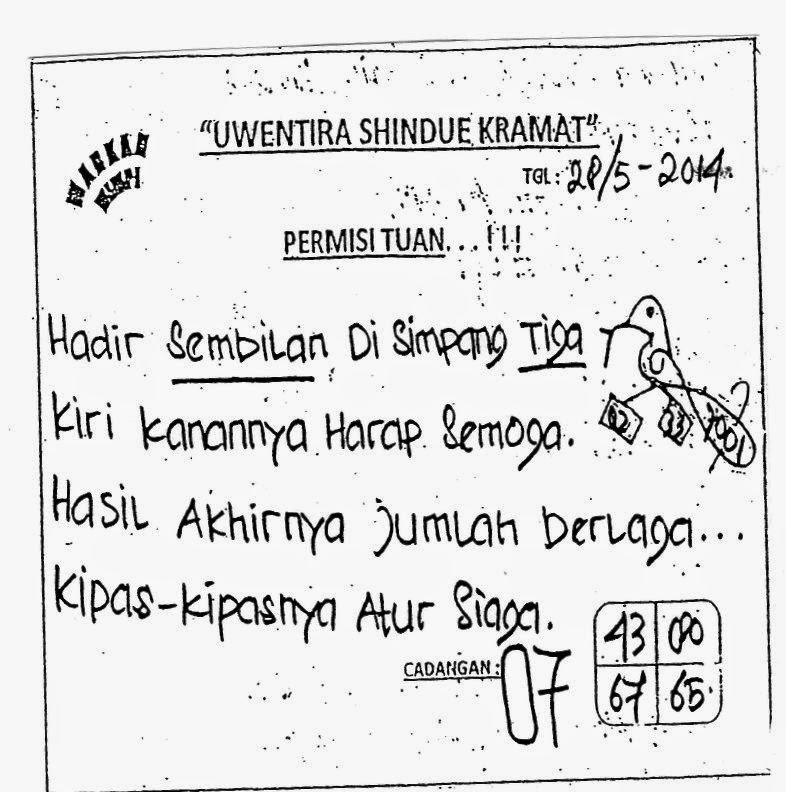 "UWENTIRA SHINDUE KRAMAT"
TGL: 28/5-2014
PERMISI TUAN...!!!
Hadir Sembilan Di Simpang Tiga
Kiri Kanannya Harap Semoga.
Hasil Akhirnya Jumlah berlaga...
Kipas-kipasnya Atur Siaga.
CADANGAN: 07
43 80
67 65